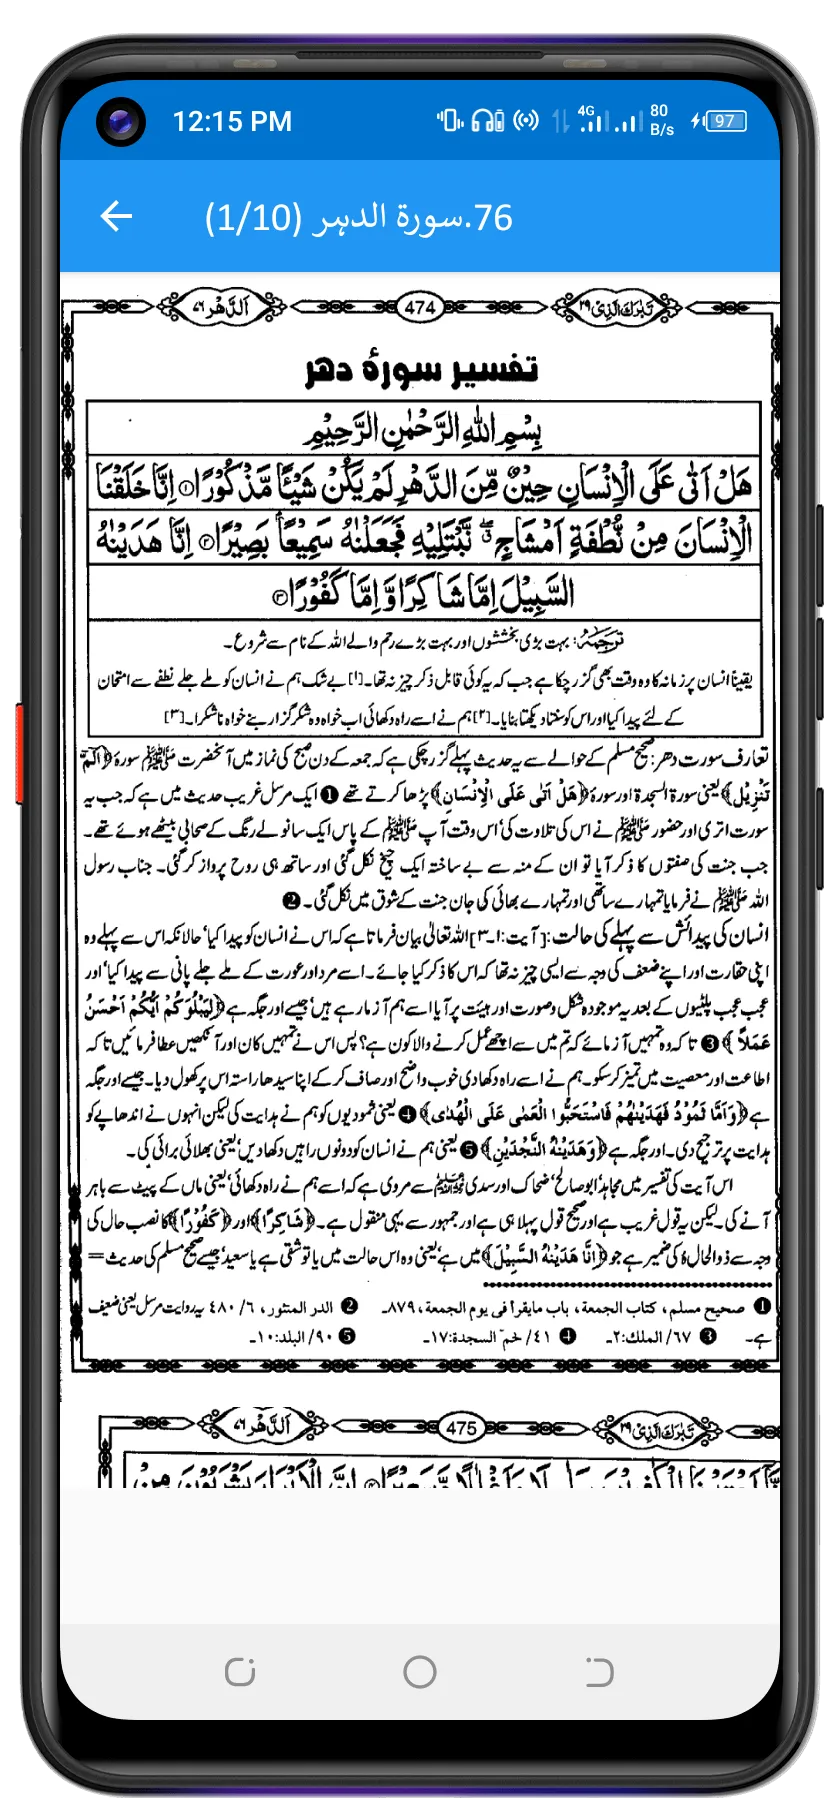 12:15 PM
4G 80 B/s 97
76.سورۃ الدہر (1/10)
اَلدَّهْر ٧٦ 474 تَبٰرَكَ الَّذِىْ ٢٩
تفسیر سورۂ دھر
بِسْمِ اللّٰهِ الرَّحْمٰنِ الرَّحِيْمِ
هَلْ اَتٰى عَلَى الْاِنْسَانِ حِيْنٌ مِّنَ الدَّهْرِ لَمْ يَكُنْ شَيْـًٔا مَّذْكُوْرًا ① اِنَّا خَلَقْنَا
الْاِنْسَانَ مِنْ نُّطْفَةٍ اَمْشَاجٍ ۖ نَّبْتَلِيْهِ فَجَعَلْنٰهُ سَمِيْعًۢا بَصِيْرًا ② اِنَّا هَدَيْنٰهُ
السَّبِيْلَ اِمَّا شَاكِرًا وَّاِمَّا كَفُوْرًا ③
ترجمہ: بہت بڑی بخششوں اور بہت بڑے رحم والے اللہ کے نام سے شروع۔
یقیناً انسان پر زمانہ کا وہ وقت بھی گزر چکا ہے جب کہ یہ کوئی قابل ذکر چیز نہ تھا۔[۱] بے شک ہم نے انسان کو ملے جلے نطفے سے امتحان
کے لئے پیدا کیا اور اس کو سنتا دیکھتا بنایا۔[۲] ہم نے اسے راہ دکھائی اب خواہ وہ شکر گزار بنے خواہ ناشکرا۔[۳]
تعارف سورت دھر: صحیح مسلم کے حوالے سے یہ حدیث پہلے گزر چکی ہے کہ جمعہ کے دن صبح کی نماز میں آنحضرت ﷺ سورۂ ﴿الٓمّٓ
تَنْزِيْلُ﴾ یعنی سورۃ السجدۃ اور سورۂ ﴿هَلْ اَتٰى عَلَى الْاِنْسَانِ﴾ پڑھا کرتے تھے ❶ ایک مرسل غریب حدیث میں ہے کہ جب یہ
سورت اتری اور حضور ﷺ نے اس کی تلاوت کی‘ اس وقت آپ ﷺ کے پاس ایک سانولے رنگ کے صحابی بیٹھے ہوئے تھے۔
جب جنت کی صفتوں کا ذکر آیا تو ان کے منہ سے بے ساختہ ایک چیخ نکل گئی اور ساتھ ہی روح پرواز کر گئی۔ جناب رسول
اللہ ﷺ نے فرمایا تمہارے ساتھی اور تمہارے بھائی کی جان جنت کے شوق میں نکل گئی۔ ❷
انسان کی پیدائش سے پہلے کی حالت: [آیت:۱۔۳] اللہ تعالیٰ بیان فرماتا ہے کہ اس نے انسان کو پیدا کیا‘ حالانکہ اس سے پہلے وہ
اپنی حقارت اور اپنے ضعف کی وجہ سے ایسی چیز نہ تھا کہ اس کا ذکر کیا جائے۔ اسے مرد اور عورت کے ملے جلے پانی سے پیدا کیا‘ اور
عجب عجب پلٹیوں کے بعد یہ موجودہ شکل و صورت اور ہیئت پر آیا اسے ہم آزما رہے ہیں‘ جیسے اور جگہ ہے ﴿لِيَبْلُوَكُمْ اَيُّكُمْ اَحْسَنُ
عَمَلًا﴾ ❸ تا کہ وہ تمہیں آزمائے کہ تم میں سے اچھے عمل کرنے والا کون ہے؟ پس اس نے تمہیں کان اور آنکھیں عطا فرمائیں تا کہ
اطاعت اور معصیت میں تمیز کر سکو۔ ہم نے اسے راہ دکھا دی خوب واضح اور صاف کر کے اپنا سیدھا راستہ اس پر کھول دیا۔ جیسے اور جگہ
ہے ﴿وَاَمَّا ثَمُوْدُ فَهَدَيْنٰهُمْ فَاسْتَحَبُّوا الْعَمٰى عَلَى الْهُدٰى﴾ ❹ یعنی ثمودیوں کو ہم نے ہدایت کی لیکن انہوں نے اندھاپے کو
ہدایت پر ترجیح دی۔ اور جگہ ہے ﴿وَهَدَيْنٰهُ النَّجْدَيْنِ﴾ ❺ یعنی ہم نے انسان کو دونوں راہیں دکھا دیں‘ یعنی بھلائی برائی کی۔
اس آیت کی تفسیر میں مجاہد‘ ابوصالح‘ ضحاک اور سدی سے مروی ہے کہ اسے ہم نے راہ دکھائی‘ یعنی ماں کے پیٹ سے باہر
آنے کی۔ لیکن یہ قول غریب ہے اور صحیح قول پہلا ہی ہے اور جمہور سے یہی منقول ہے۔ ﴿شَاكِرًا﴾ اور ﴿كَفُوْرًا﴾ کا نصب حال کی
وجہ سے ذوالحال ہٗ کی ضمیر ہے جو ﴿اِنَّا هَدَيْنٰهُ السَّبِيْلَ﴾ میں ہے‘ یعنی وہ اس حالت میں یا تو شقی ہے یا سعید‘ جیسے صحیح مسلم کی حدیث =
❶ صحیح مسلم، کتاب الجمعة، باب مایقرأ فی یوم الجمعة، ۸۷۹۔ ❷ الدر المنثور، ۶/ ۴۸۰ یہ روایت مرسل یعنی ضعیف
ہے۔ ❸ ۶۷/ الملك:۲۔ ❹ ۴۱/ حٰم السجدة:۱۷۔ ❺ ۹۰/ البلد:۱۰۔
اَلدَّهْر ٧٦ 475 تَبٰرَكَ الَّذِىْ ٢٩